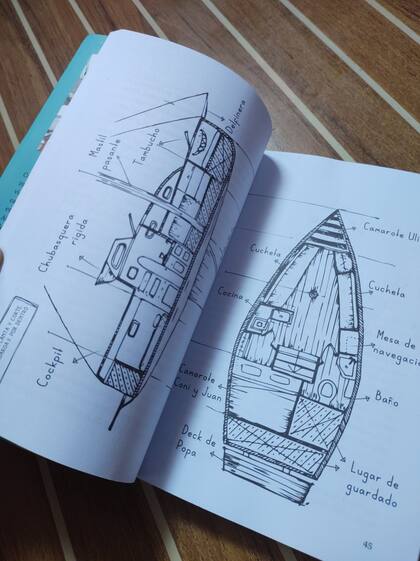 Delfinera
Mastil
pasante
Tambucho
Chubasquera
rigida
Cockpit
PLANTA Y CORTE
Camarote Uli
Cucheta
Cucheta
Cocina
Mesa de
Baño
Camarote
Loni y Juan
Deck de
Popa
Lugar de
guardado
45